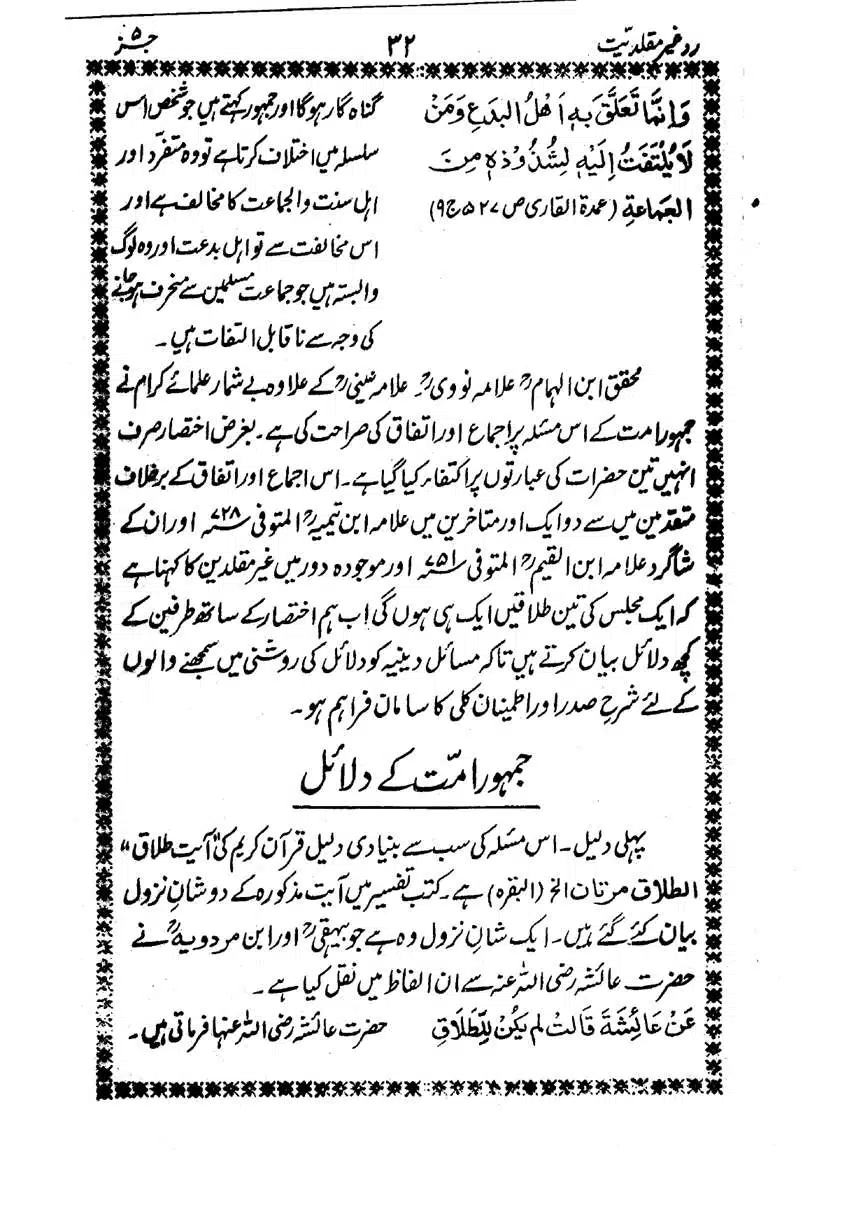 رد غیر مقلدیت
۳۲
جز ۵
وَاِنَّمَا تَعَلَّقَ بِہٖ اَھْلُ البِدَعِ وَمَنْ
لَا یُلْتَفَتُ اِلَیْہِ لِشُذُوْذِہٖ مِنَ
الجَمَاعَۃِ (عمدۃ القاری ص ۵۲۷ ج۹)
گناہ گار ہوگا اور جمہور کہتے ہیں جو شخص اس
سلسلہ میں اختلاف کرتا ہے تو وہ متفرّد اور
اہل سنت والجماعت کا مخالف ہے اور
اس مخالفت سے تو اہل بدعت اور وہ لوگ
وابستہ ہیں جو جماعت مسلمین سے منحرف ہوجانے
کی وجہ سے ناقابل التفات ہیں۔
محقق ابن الہمامؒ علامہ نوویؒ۔ علامہ عینیؒ کے علاوہ بے شمار علمائے کرام نے
جمہور امت کے اس مسئلہ پر اجماع اور اتفاق کی صراحت کی ہے۔ بغرض اختصار صرف
انہیں تین حضرات کی عبارتوں پر اکتفاء کیا گیا ہے۔ اس اجماع اور اتفاق کے برخلاف
متقدمین میں سے دو ایک اور متاخرین میں علامہ ابن تیمیہؒ المتوفی ۷۲۸ھ اور ان کے
شاگرد علامہ ابن القیمؒ المتوفی ۷۵۱ھ اور موجودہ دور میں غیر مقلدین کا کہنا ہے
کہ ایک مجلس کی تین طلاقیں ایک ہی ہوں گی اب ہم اختصار کے ساتھ طرفین کے
کچھ دلائل بیان کرتے ہیں تاکہ مسائل دینیہ کو دلائل کی روشنی میں سمجھنے والوں
کے لئے شرحِ صدر اور اطمینان کلی کا سامان فراہم ہو۔
جمہور امّت کے دلائل
پہلی دلیل۔ اس مسئلہ کی سب سے بنیادی دلیل قرآن کریم کی "آیت طلاق"
الطلاق مرتان الخ (البقرہ) ہے۔ کتب تفسیر میں آیت مذکورہ کے دو شانِ نزول
بیان کئے گئے ہیں۔ ایک شانِ نزول وہ ہے جو بیہقیؒ اور ابن مردویہؒ نے
حضرت عائشہ رضی اللہ عنہ سے ان الفاظ میں نقل کیا ہے۔
عَنْ عَائِشَۃَ قَالَتْ لَمْ یَکُنْ لِلطَّلَاقِ
حضرت عائشہ رضی اللہ عنہا فرماتی ہیں۔